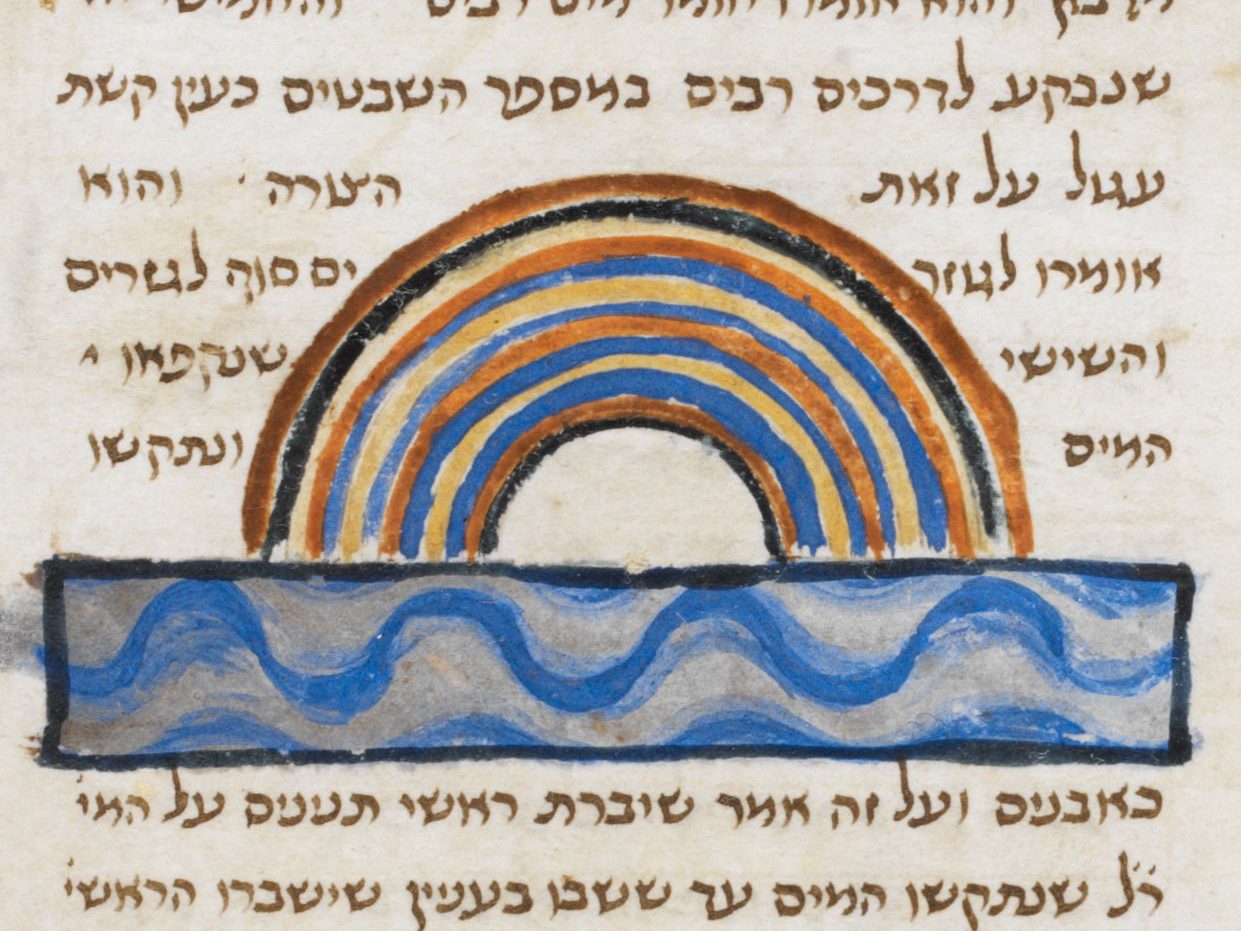 שנבקע לדרכים רבים במספר השבטים כעין קשת
עגול על זאת הצורה והוא
אומרו לגוזר ים סוף לגזרים
והשישי שנקפאו
המים ונתקשו
כאבנים ועל זה אמר שיברת ראשי תנינים על המי'
ר"ל שנתקשו המים עד ששבו בענין שישברו הראשי'